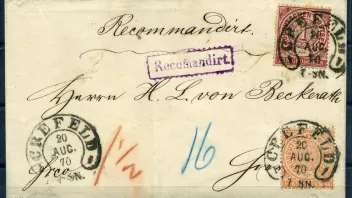 Recommandirt.
Recomandirt.
CREFELD
20
AUG.
70
7-8N.
Herrn H. L. von Beckerath
CREFELD
20
AUG.
70
7-8N.
1 1/2
16
CREFELD
20
AUG.
70
7-8N.
frco